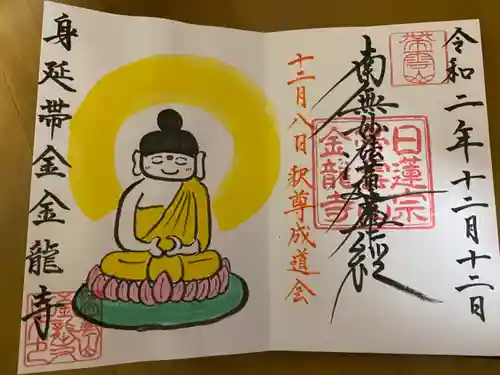 令和二年十二月十二日
南無妙法蓮華経
日蓮宗
金龍寺
十二月八日釈尊成道会
身延帯金金龍寺